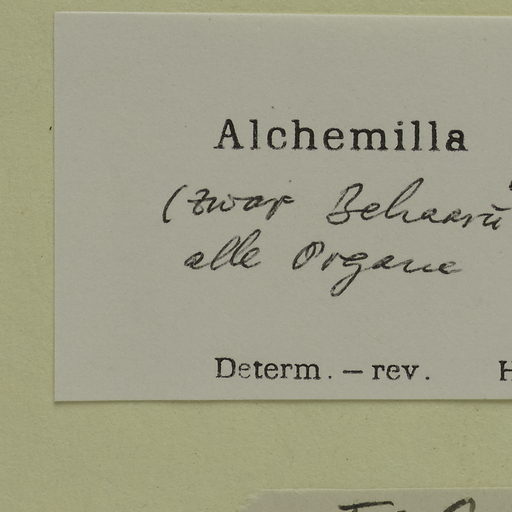 Alchemilla
(zwar Behaarü
alle Organe
Determ. – rev. H